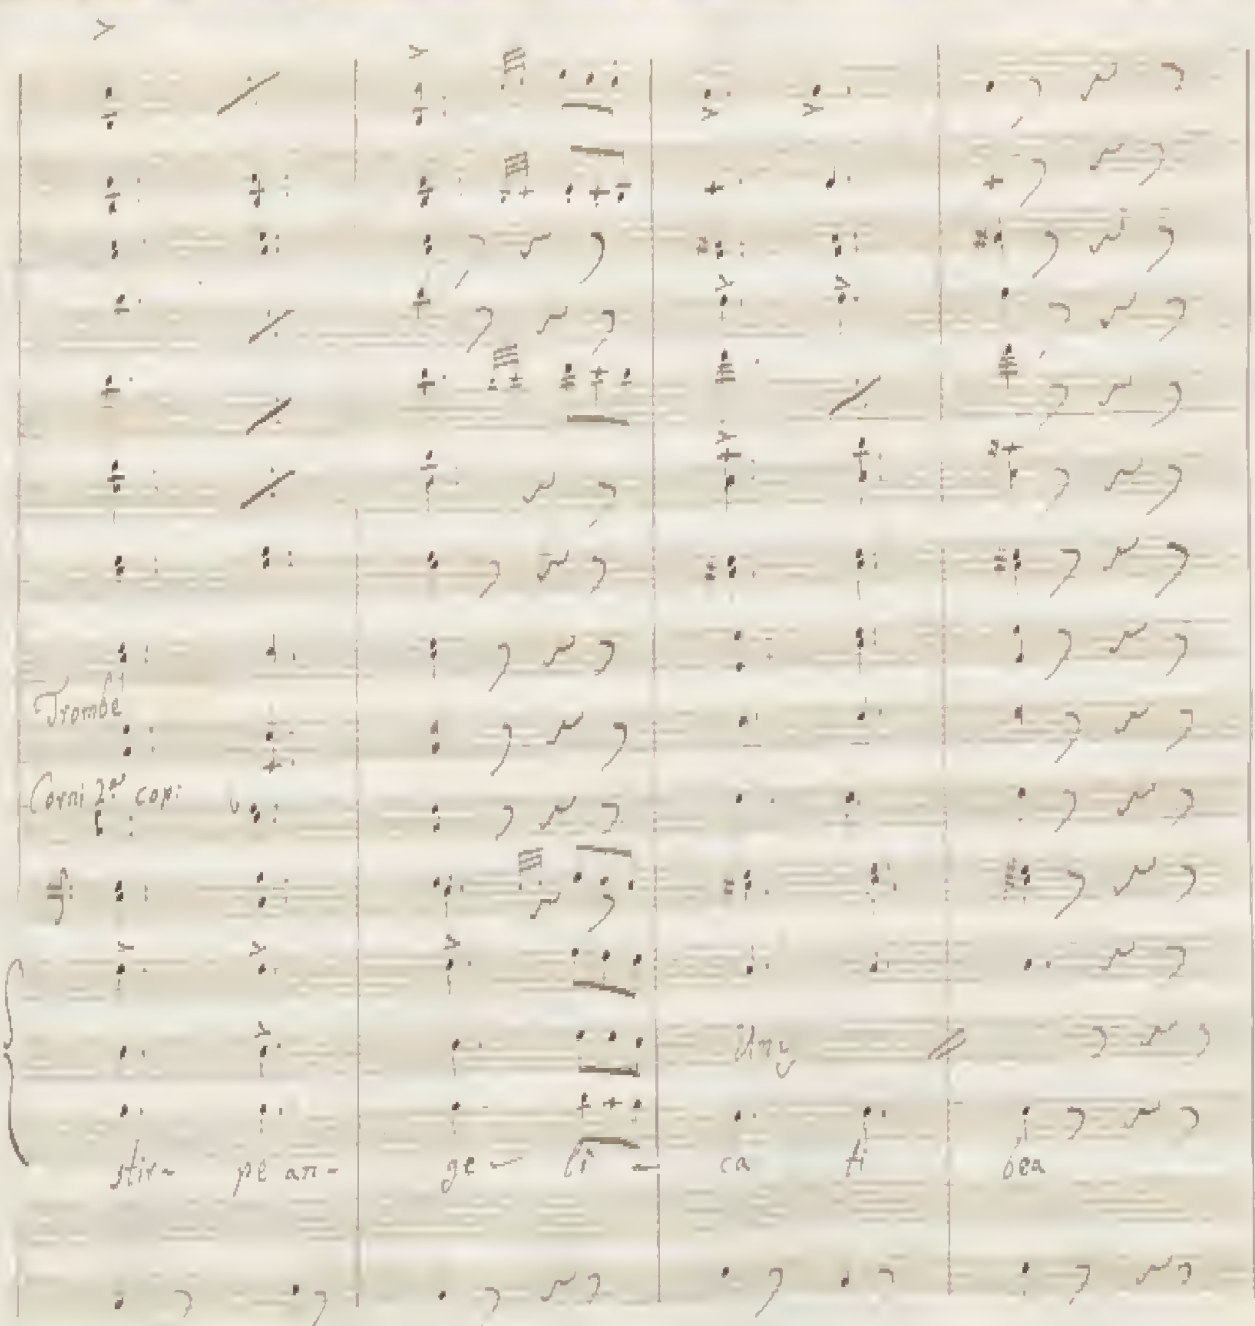 Trombe
Corni 2ª cop:
Unis
stir- pe an- ge- li- ca ti bea